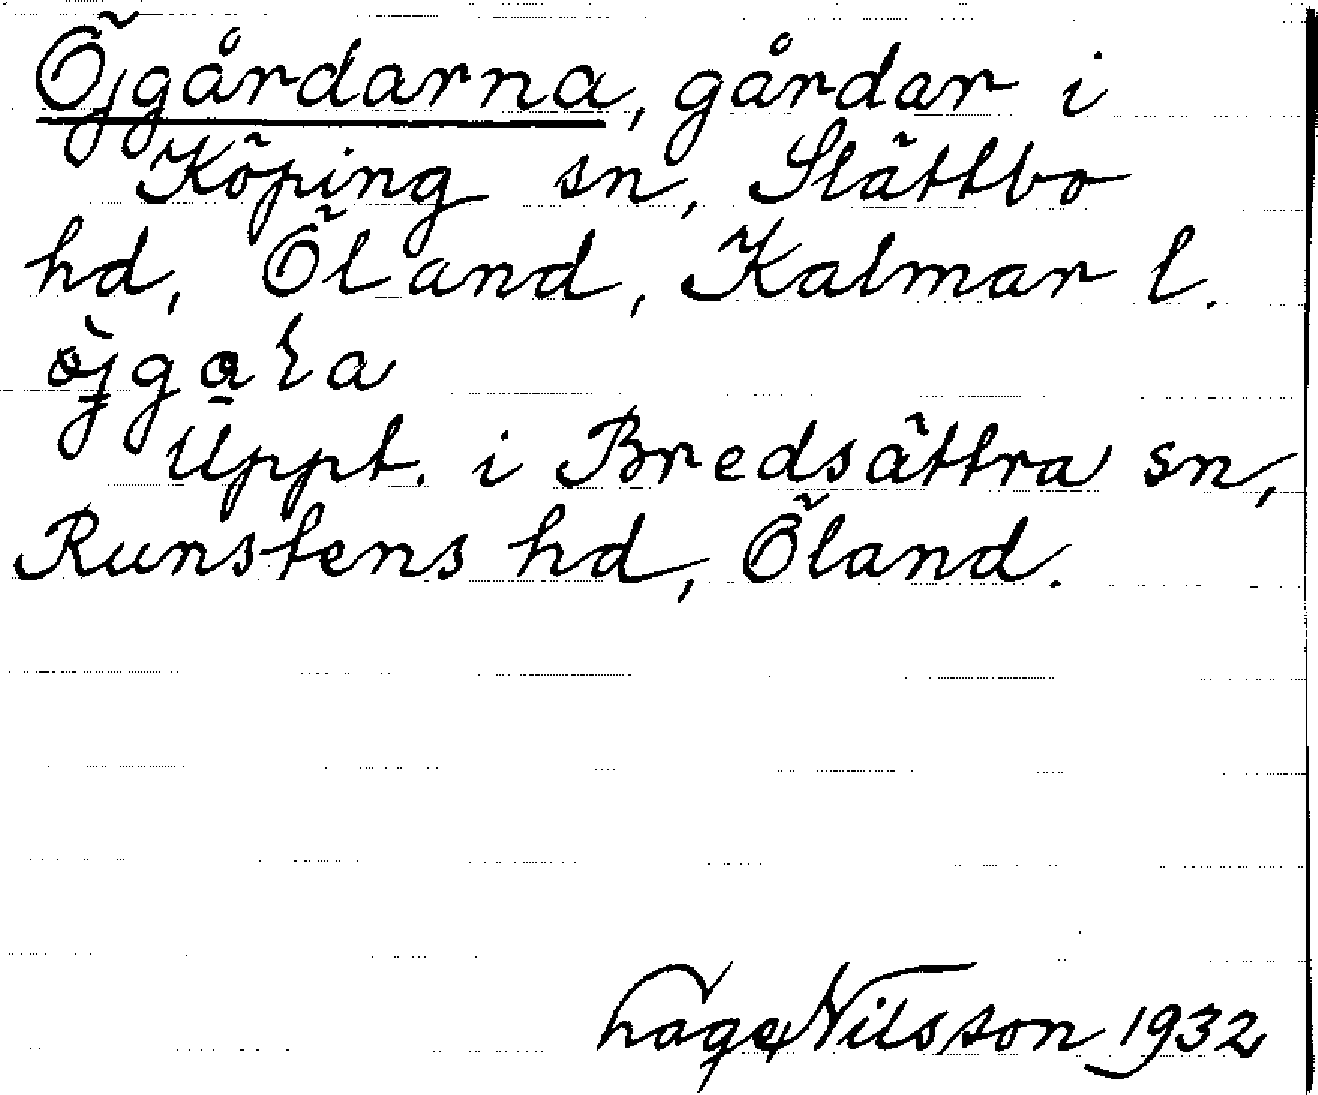 Öjgårdarna, gårdar i
Köping sn, Slättbo
hd, Öland, Kalmar l.
Uppt. i Bredsättra sn,
Runstens hd, Öland.
Nilsson 1932